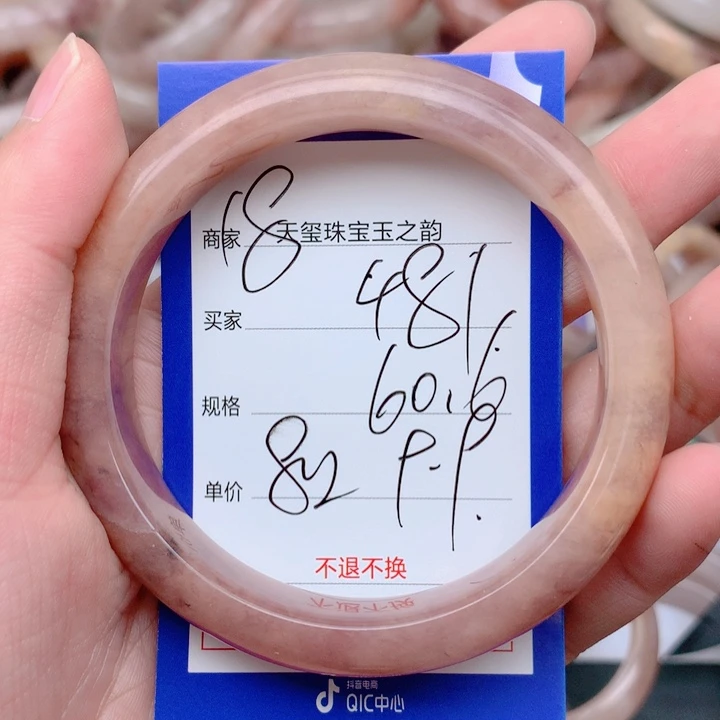 18
商家 天玺珠宝玉之韵
481.
买家
60.6
规格
9.9.
单价 82
不退不换
抖音电商
QIC中心